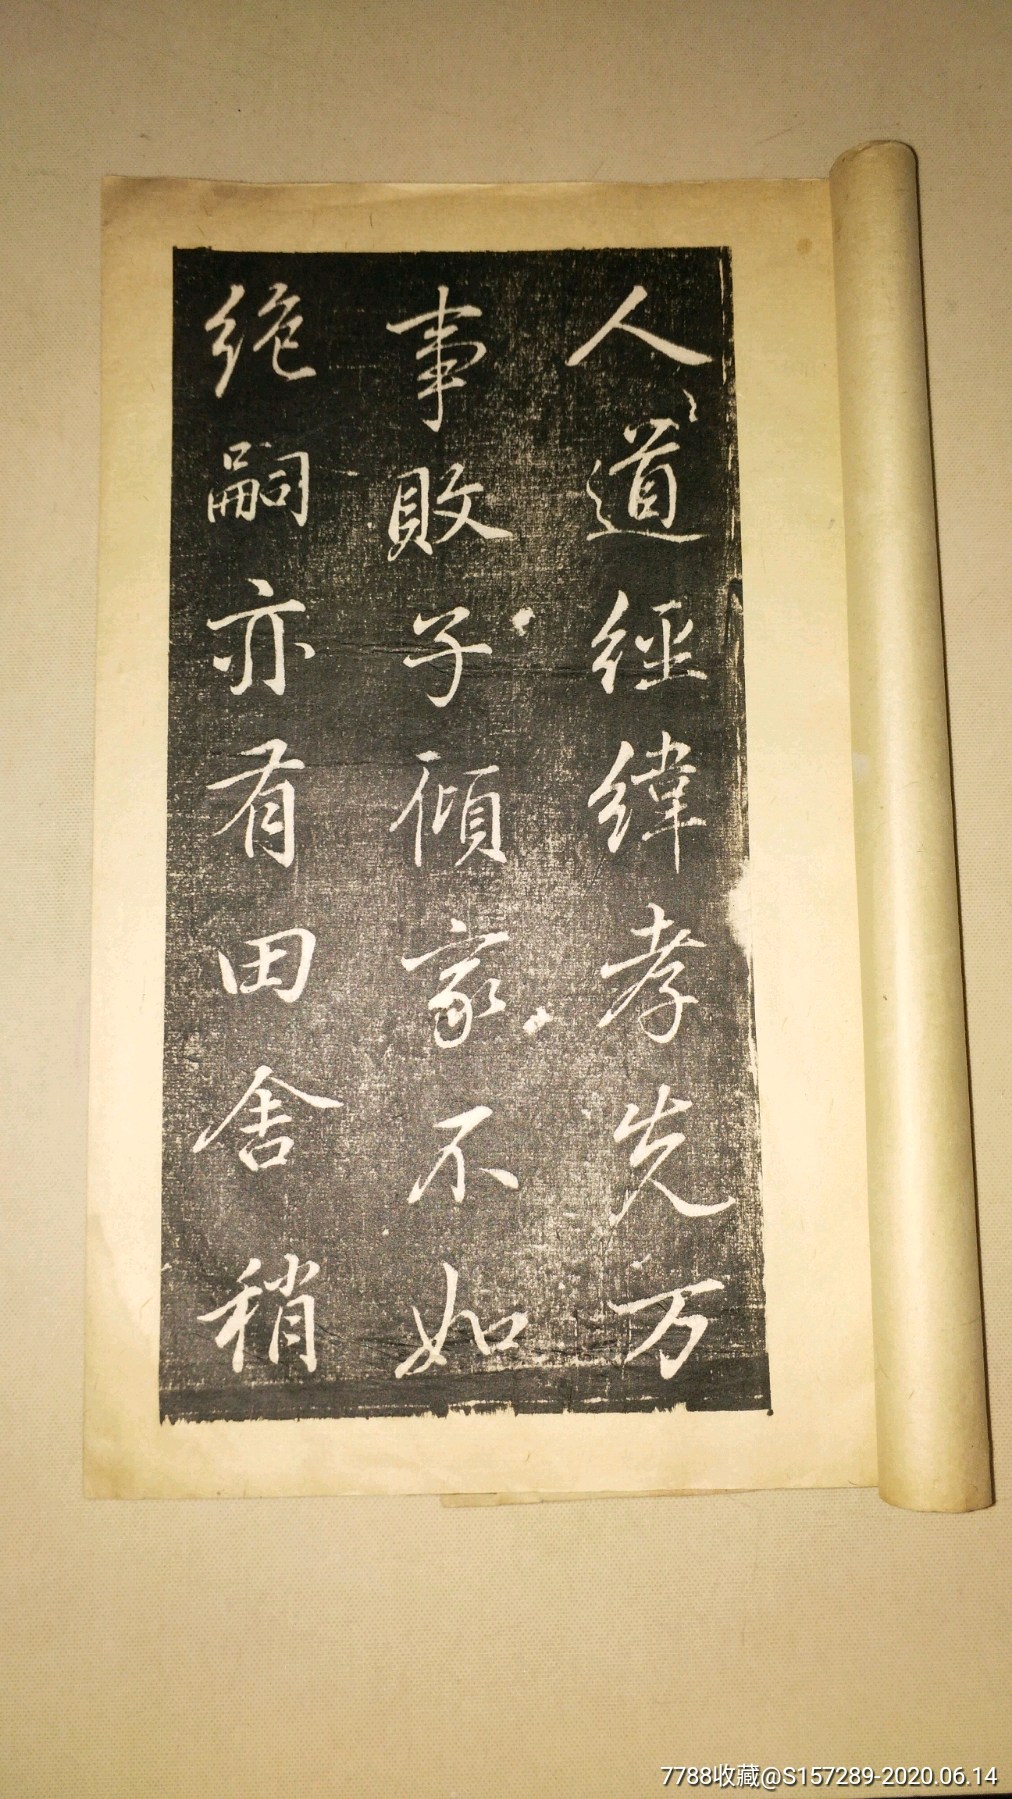 人道經緯孝先万
事敗子傾家不如
絶嗣亦有田舍稍
7788收藏@S157289-2020.06.14